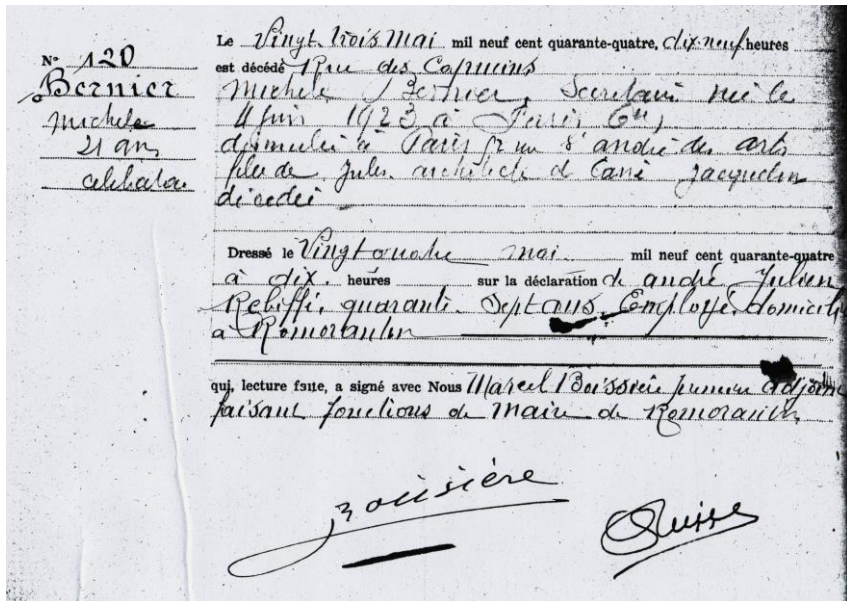 N° 120
Bernier
Michele
21 ans
celibataire
Le Vingt trois Mai mil neuf cent quarante-quatre, dix neuf heures
est décédé Rue des Capucins
Michele Bernier, Secretaire née le
4 Juin 1923 à Paris, 6me,
domiciliée à Paris rue St andré des arts
fille de Jules architecte et Jacquelin
décédée
Dressé le Vingt quatre mai mil neuf cent quarante-quatre
à dix heures sur la déclaration de andré Julien
quarante Sept ans, Employé, domicilié
a Romorantin
qui, lecture faite, a signé avec Nous Marcel Boissière premier adjoint
faisant fonctions de Maire de Romorantin
Boissière